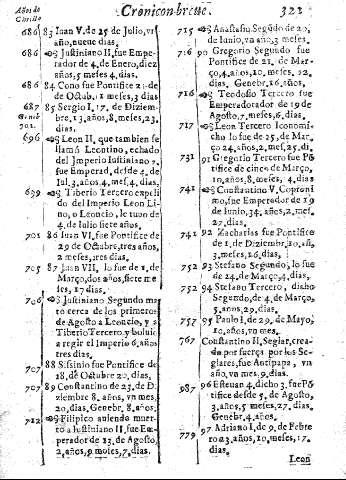 Años de Christo
Cronicon breue.
323
686 83 Iuan V. de 25 de Iulio, vn
año, nueue dias.
686 Justiniano II. fue Empe-
rador 4. de Enero, diez
años, 5 meses 4. dias.
686 84 Cono fue Pontifice 21. de
de Octub. 11 meses, 3 dias
687 85 Sergio I. 17. de Diziem-
bre, 13. años, 8. meses, 23.
dias.
696 Leon II. que tambien se
llamó Leontino, echado
del Jmperio Iustiniano,
fue Emperad. desde 4. de
Iul. 3. años, 4. mes. 4. dias.
639 Tiberio Tercero expeli
do del Imperio Leon Li-
no, o Leoncio, le tuuo de
4. de Iulio siete años.
701 86 Iuan VI. fue Pontifice de
29 de Octubre, tres años,
2 meses, tres dias.
705 87 Juan VII. lo fue de 1. de
Março, dos años, siete me
ses, 17. dias.
706 Justiniano Segundo ma-
to cerca de los primeros
de Agosto a Leoncio, y a
Tiberio Tercero, y boluio
a regir el Imperio 6. años
tres dias.
707 88 Sisinio fue Pontifice de
18. de Octubre 20. dias.
707 89 Constantino de 23. de Di
ziembre 8. años, vn mes,
20. dias, Genebr. 8. años.
712 Filipico auiendo muer-
to a Iustiniano II. fue Em-
perador de 13. de Agosto,
2. años, 9 meses, 7. dias.
715 Anastasio Segũdo de 20.
de Iunio, vn año, 3 meses.
716 90 Gregorio Segundo fue
Pontifice de 21. de Mar-
ço, 4. años, 10. meses, 22.
dias. Genebr. 16. años.
716 Teodosio Tercero fue
Emperadorador de 19 de
Agosto, 7. meses, 6. dias.
717 Leon Tercero Iconomi-
cho lo fue de 25. de Mar-
ço 24. años, 2. mes. 25. di.
731 91 Gregorio Tercero fue Põ
tifice de cinco de Março,
10. años, 8. meses, 4. dias
741 Constantino V. Coproni
mo, fue Emperador de 19
de Iunio, 34. años, 2. mes.
27. dias.
741 92 Zacharias fue Pontifice
de 1. de Diziembre, 10. añ.
3. meses, 16. dias.
752 93 Stefano Segundo, lo fue
de 24. de Março, 4. dias.
752 94 Stefano Tercero, dicho
Segundo, de 4. de Março,
5. años, 29. dias.
757 95 Paulo I. de 29. de Mayo,
10. años, vn mes.
767 Constantino II. Seglar, crea-
do por fuerça por los Se-
glares, fue Antipapa, vn
año, vn mes, 9. dias.
987 96 Esteuan 4. dicho 3. fue Põ
tifice desde 5. de Agosto,
3. años, 5 meses, 27. dias.
Genebr. 4. años.
779 97 Adriano I. de 9. de Febre
ro 23. años, 10. meses, 17.
dias.
Leon